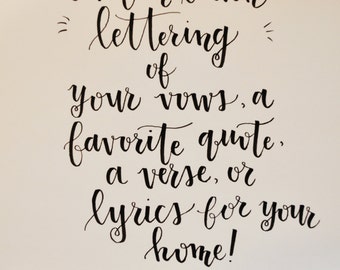 lettering
of
your vows, a
favorite quote,
a verse, or
lyrics for your
home!